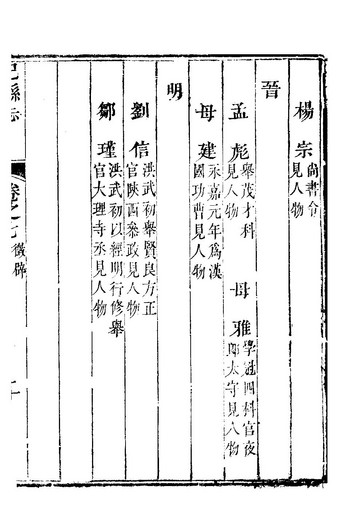 楊宗 尚書令
見人物
晉
孟彪 舉茂才科
見人物
毋雅 學冠四科官夜
郎太守見人物
毋建 永嘉元年爲漢
國功曹見人物
明
劉信 洪武初舉賢良方正
官陝西參政見人物
鄒瑾 洪武初以經明行修舉
官大理寺丞見人物
縣志
卷之七 徵辟